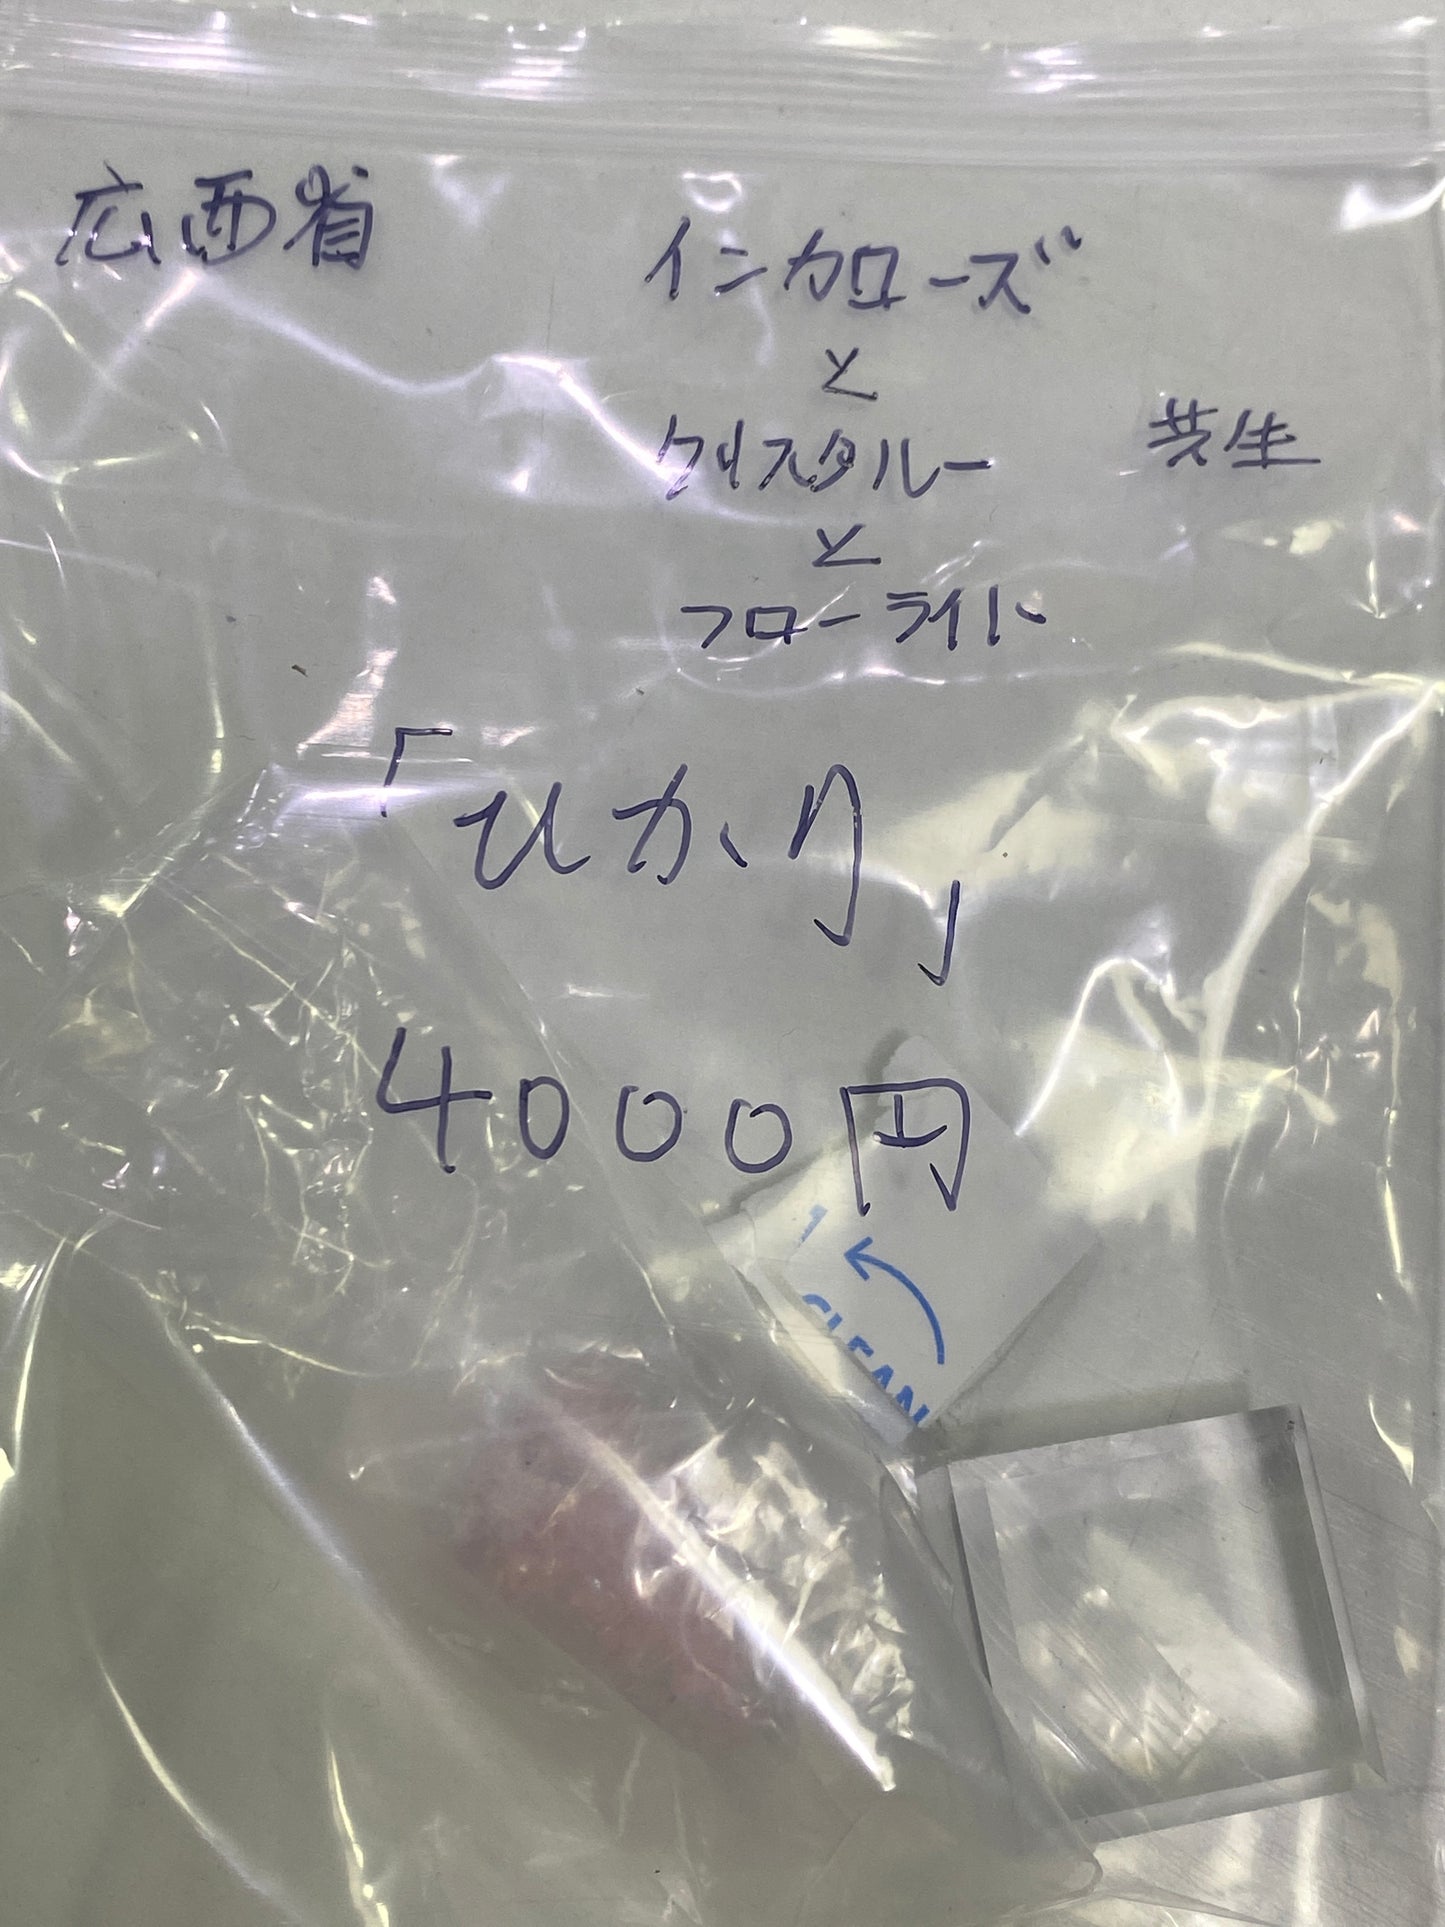 広西省
インカローズ
と
クリスタルー
共生
と
フローライト
「ひかり」
4000円
1
CLEAN